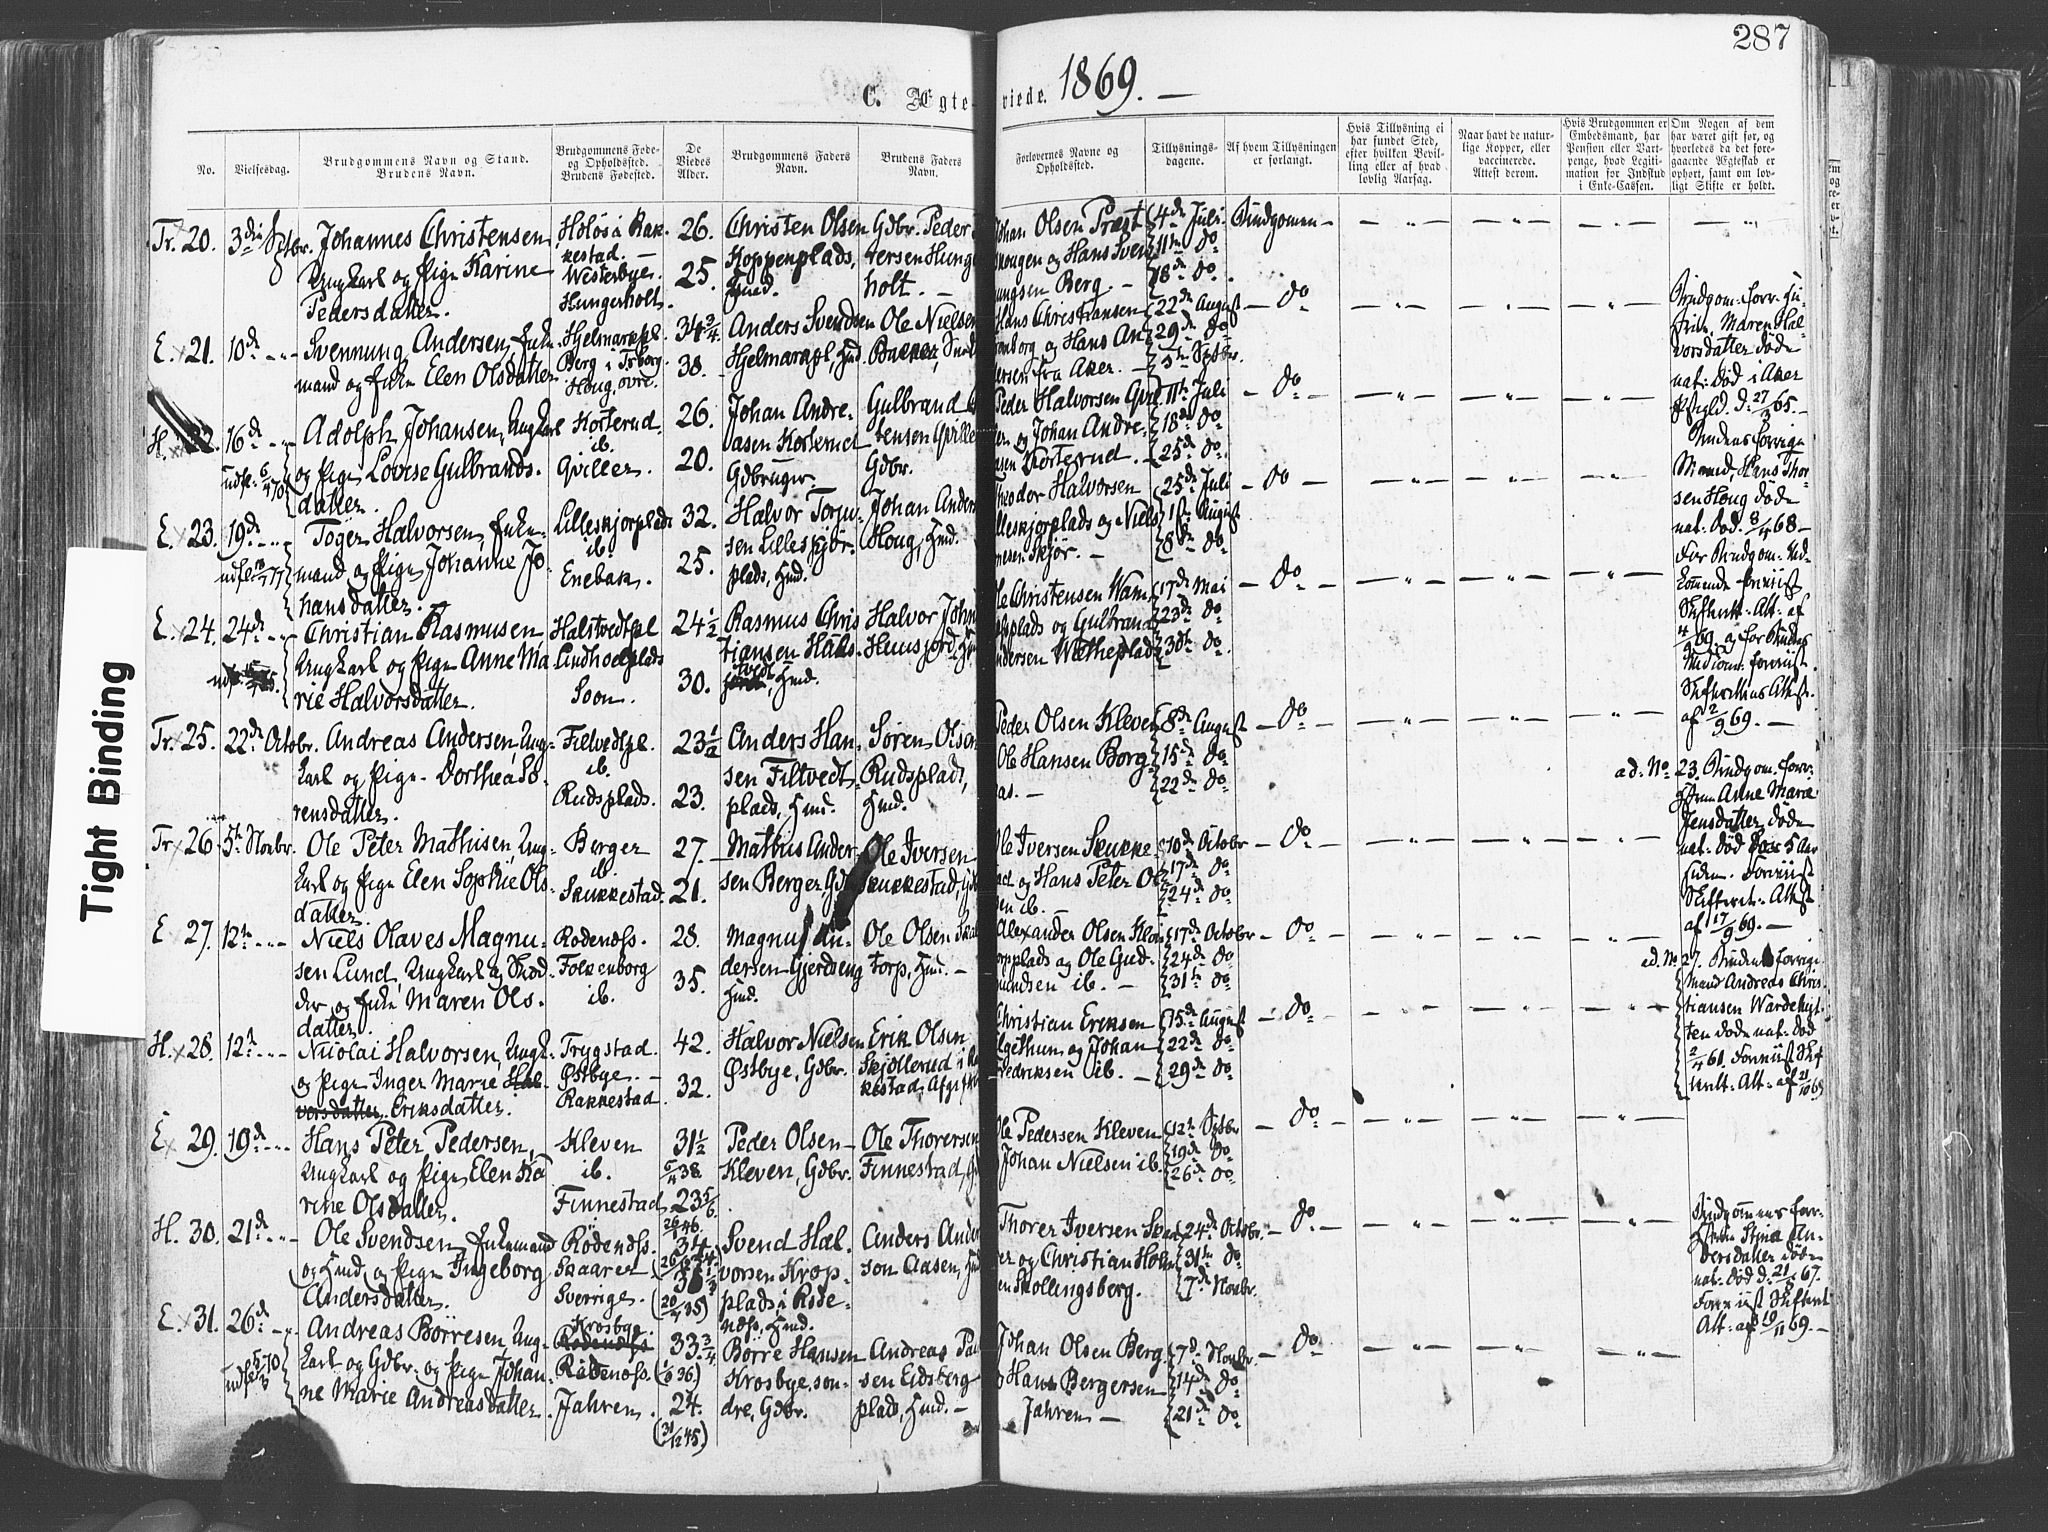 287
C. Ægteviede. 1869. —
No.
Vielsesdag.
Brudgommens Navn og Stand.
Brudens Navn.
Brudgommens Føde-
og Opholdssted.
Brudens Fødested.
De
Viedes
Alder.
Brudgommens Faders
Navn.
Brudens Faders
Navn.
Forlovernes Navne og
Opholdssted.
Tillysnings-
dagene.
Af hvem Tillysningen
er forlangt.
Hvis Tillysning ei
har fundet Sted,
efter hvilken Bevil-
ling eller af hvad
lovlig Aarsag.
Naar havt de natur-
lige Kopper, eller
vaccinerede.
Attest derom.
Hvis Brudgommen er
Embedsmand, har
Pension eller Vart-
penge, hvad Legiti-
mation for Indskud
i Enke-Cassen.
Om Nogen af dem
har været gift før, og
hvorledes da det fore-
gaaende Ægteskab er
ophørt, samt om lov-
ligt Skifte er holdt.
Tr. 20. 3die Septbr. Johannes Christensen
Ungkarl og Pige Karine
Pedersdatter.
Holøs i Rak-
kestad. —
Westerbye.
Hungerholt.
26.
25.
Christen Olsen
Koppenplads,
Huusmd.
Gdbr. Peder
tersen Hunge
holt. —
Johan Olsen Præst
skougen og Hans Sven
ungsen Berg. —
4de Juli
11te do
18de do.
Brudgommen
E. 21. 10de
Svennung Andersen, Enke-
mand og Enke Elen Olsdatter
Hjelmarkpl.
Berg i Trborg
Houg, øvre.
34 3/4
38.
Anders Svendsen
Hjelmarkpl, Hmd.
Ole Nielsen
Bakker, Smed
Hans Christiansen
Hans An
dersen fra Aker. —
22de August
29de do
5te Septbr.
do
Brudgom. forr. Hu-
stru, Maren Hal-
vorsdatter døde
nat. Død i Aker
Pfgld. d. 27/3 65. —
H. 22. 16de
udfl. 6/4 70
Adolph Johansen, Ungkarl
og Pige Lovise Gulbrands-
datter.
Korterud.
ib.
Gviller.
26.
20.
Johan Andre-
asen Korterud
Gdbruger.
Gulbrand
tensen Gviller
Gdbr.
Peder Halvorsen Gvil
ler og Johan Andre-
asen Korterud. —
11te Juli
18de do
25de do.
do
Brudens forrige
Mand, Hans Thor-
sen Houg døde
nat. Død. 8/4 68 —
E. 23. 19de
Töger Halvorsen, Enke-
mand og Pige Johanne Jo-
hansdatter.
Lilleskjorplads
ib.
Enebak.
32.
25.
Halvor Torju-
sen Lilleskjör-
plads, Hmd.
Johan Anders
Houg, Hmd.
Theodor Halvorsen
Lilleskjorplads og Niels
Skjør. —
25de Juli
1ste August
8de do
do
E. 24. 24de
Christian Rasmusen
Ungkarl og Pige Anne Ma
rie Halvorsdatter.
Halstvedtpl
Lindhoelplads
Soon.
24 1/2
30.
Rasmus Chris
tiansen Hals-
tvedt, Hmd.
Halvor John
Huusjord, Hm
Ole Christensen Wam
melsplads og Gulbrand
Andersen Wetheplads
17de Mai
23de do
30te do.
do
Tr. 25. 22de Octobr.
Andreas Andersen, Ung-
karl og Pige Dorthea Sö-
rensdatter.
Filtvedtpl.
ib.
Rudsplads.
23 1/2
23.
Anders Han-
sen Filtvedt-
plads, Hmd.
Søren Olsen
Rudsplads,
Hmd.
Peder Olsen Kleven
Ole Hansen Borg
aas. —
8de August
15de do
22de do
do
af 2/9 69. —
ad. No 23. Brudgom. forr.
Hstru Anne Marie
Jensdatter døde
nat. Død for 5 Aar
siden. Foreviist
Skifteret. Attst
af 17/9 69. —
Tr. 26. 5te Novbr.
Ole Peter Mathisen Ung-
karl og Pige Elen Sophie Ols-
datter.
Berger
ib.
Skukkestad.
27.
21.
Mathis Ander-
sen Berger, Gdb
Ole Iversen
Skukkestad, Gdb
Ole Iversen Skukke
stad og Hans Peter Ol
sen ib. —
10de Octobr
17de do
24de do
do
E 27. 12te
Niels Olaves Magnu-
sen Lund, Ungkarl og Skræd-
der og Enke Maren Ols-
datter.
Rødenæs.
Folkenborg
ib.
28.
35.
Magnus An-
dersen Gjerdseng
Hmd.
Ole Olsen Skal
torp, Hmd. —
Alexander Olsen Klov
torpplads og Ole Gud-
mundsen ib. —
17de Octobr
24de do
31te do
do
ad. No 27. Brudens forrige
Mand Andreas Chris-
tiansen Wardehyt-
ten døde nat. Død
2/4 61. Foreviist Skif
terett. Att. af 21/10 69
H. 28. 12te
Nicolai Halvorsen, Ungk.
og Pige Inger Marie Hal-
vorsdatter Eriksdatter.
Trygstad.
Østbye. —
Rakkestad
42.
32.
Halvor Nielsen
Østbye, Gdbr.
Erik Olsen
Skjøllerud i R
kestad,
Christian Eriksen
Elgethun og Johan
Fredriksen ib. —
15de August
22de do
29de do
do
E 29. 19de
Hans Peter Pedersen,
Ungkarl og Pige Elen Ka
rine Olsdatter.
Kleven
ib.
Finnestad
31 1/2
6/4 38
23 5/6
26/1 46.
Peder Olsen
Kleven, Gdbr.
Ole Thoresen
Finnestad, G
Ole Pedersen Kleven
Johan Nielsen ib.
12te Septbr
19de do
26de do
do
H. 30. 21de
Ole Svendsen, Enkemand
og Hmd, og Pige Ingeborg
Andersdatter.
Rødenæss.
Skaarer
Sverrige.
34
(20/7 35)
Svend Hal-
vorsen Krop-
plads, i Røde-
næss, Hmd.
Anders Ander
son Aasen, Hmd
Thorer Iversen Skaa
rer og Christian Holm
en Skollingsberg.
24de Octobr.
31te do
7de Novbr.
do
Brudgommens forr.
Hstru Stina An-
dersdatter døde
nat. Død d. 21/8 67.
Foreviist Skifteret
Att. af 19/11 69. —
E. 31. 26de
udfl. 5/3 70
Andreas Börresen, Ung-
karl og Gdbr. og Pige Johan-
ne Marie Andreasdatter.
Krosbye.
Rødenæs
Rødenæss.
Jahren.
33 3/4
(1/6 36)
24.
(31/12 45)
Börre Hansen
Krosbye, søn-
dre, Gdbr.
Andreas Pal
sen Eidsberg
plads, Hmd. —
Johan Olsen Berg
Hans Bergersen
Jahren —
7de Novbr.
14de do
21de do
do
Tight Binding